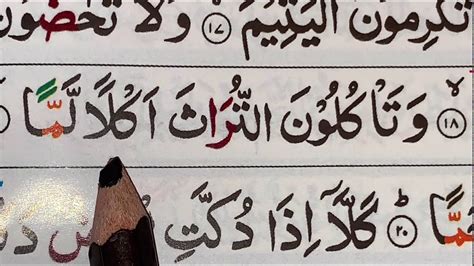 تُكْرِمُونَ الْيَتِيْمَ ۝١٧ وَلَا تَحٰٓضُّوْنَ
۝١٨ وَتَاْكُلُوْنَ التُّرَاثَ اَكْلًا لَّمًّا
مًّا ۝٢٠ كَلَّآ اِذَا دُكَّتِ